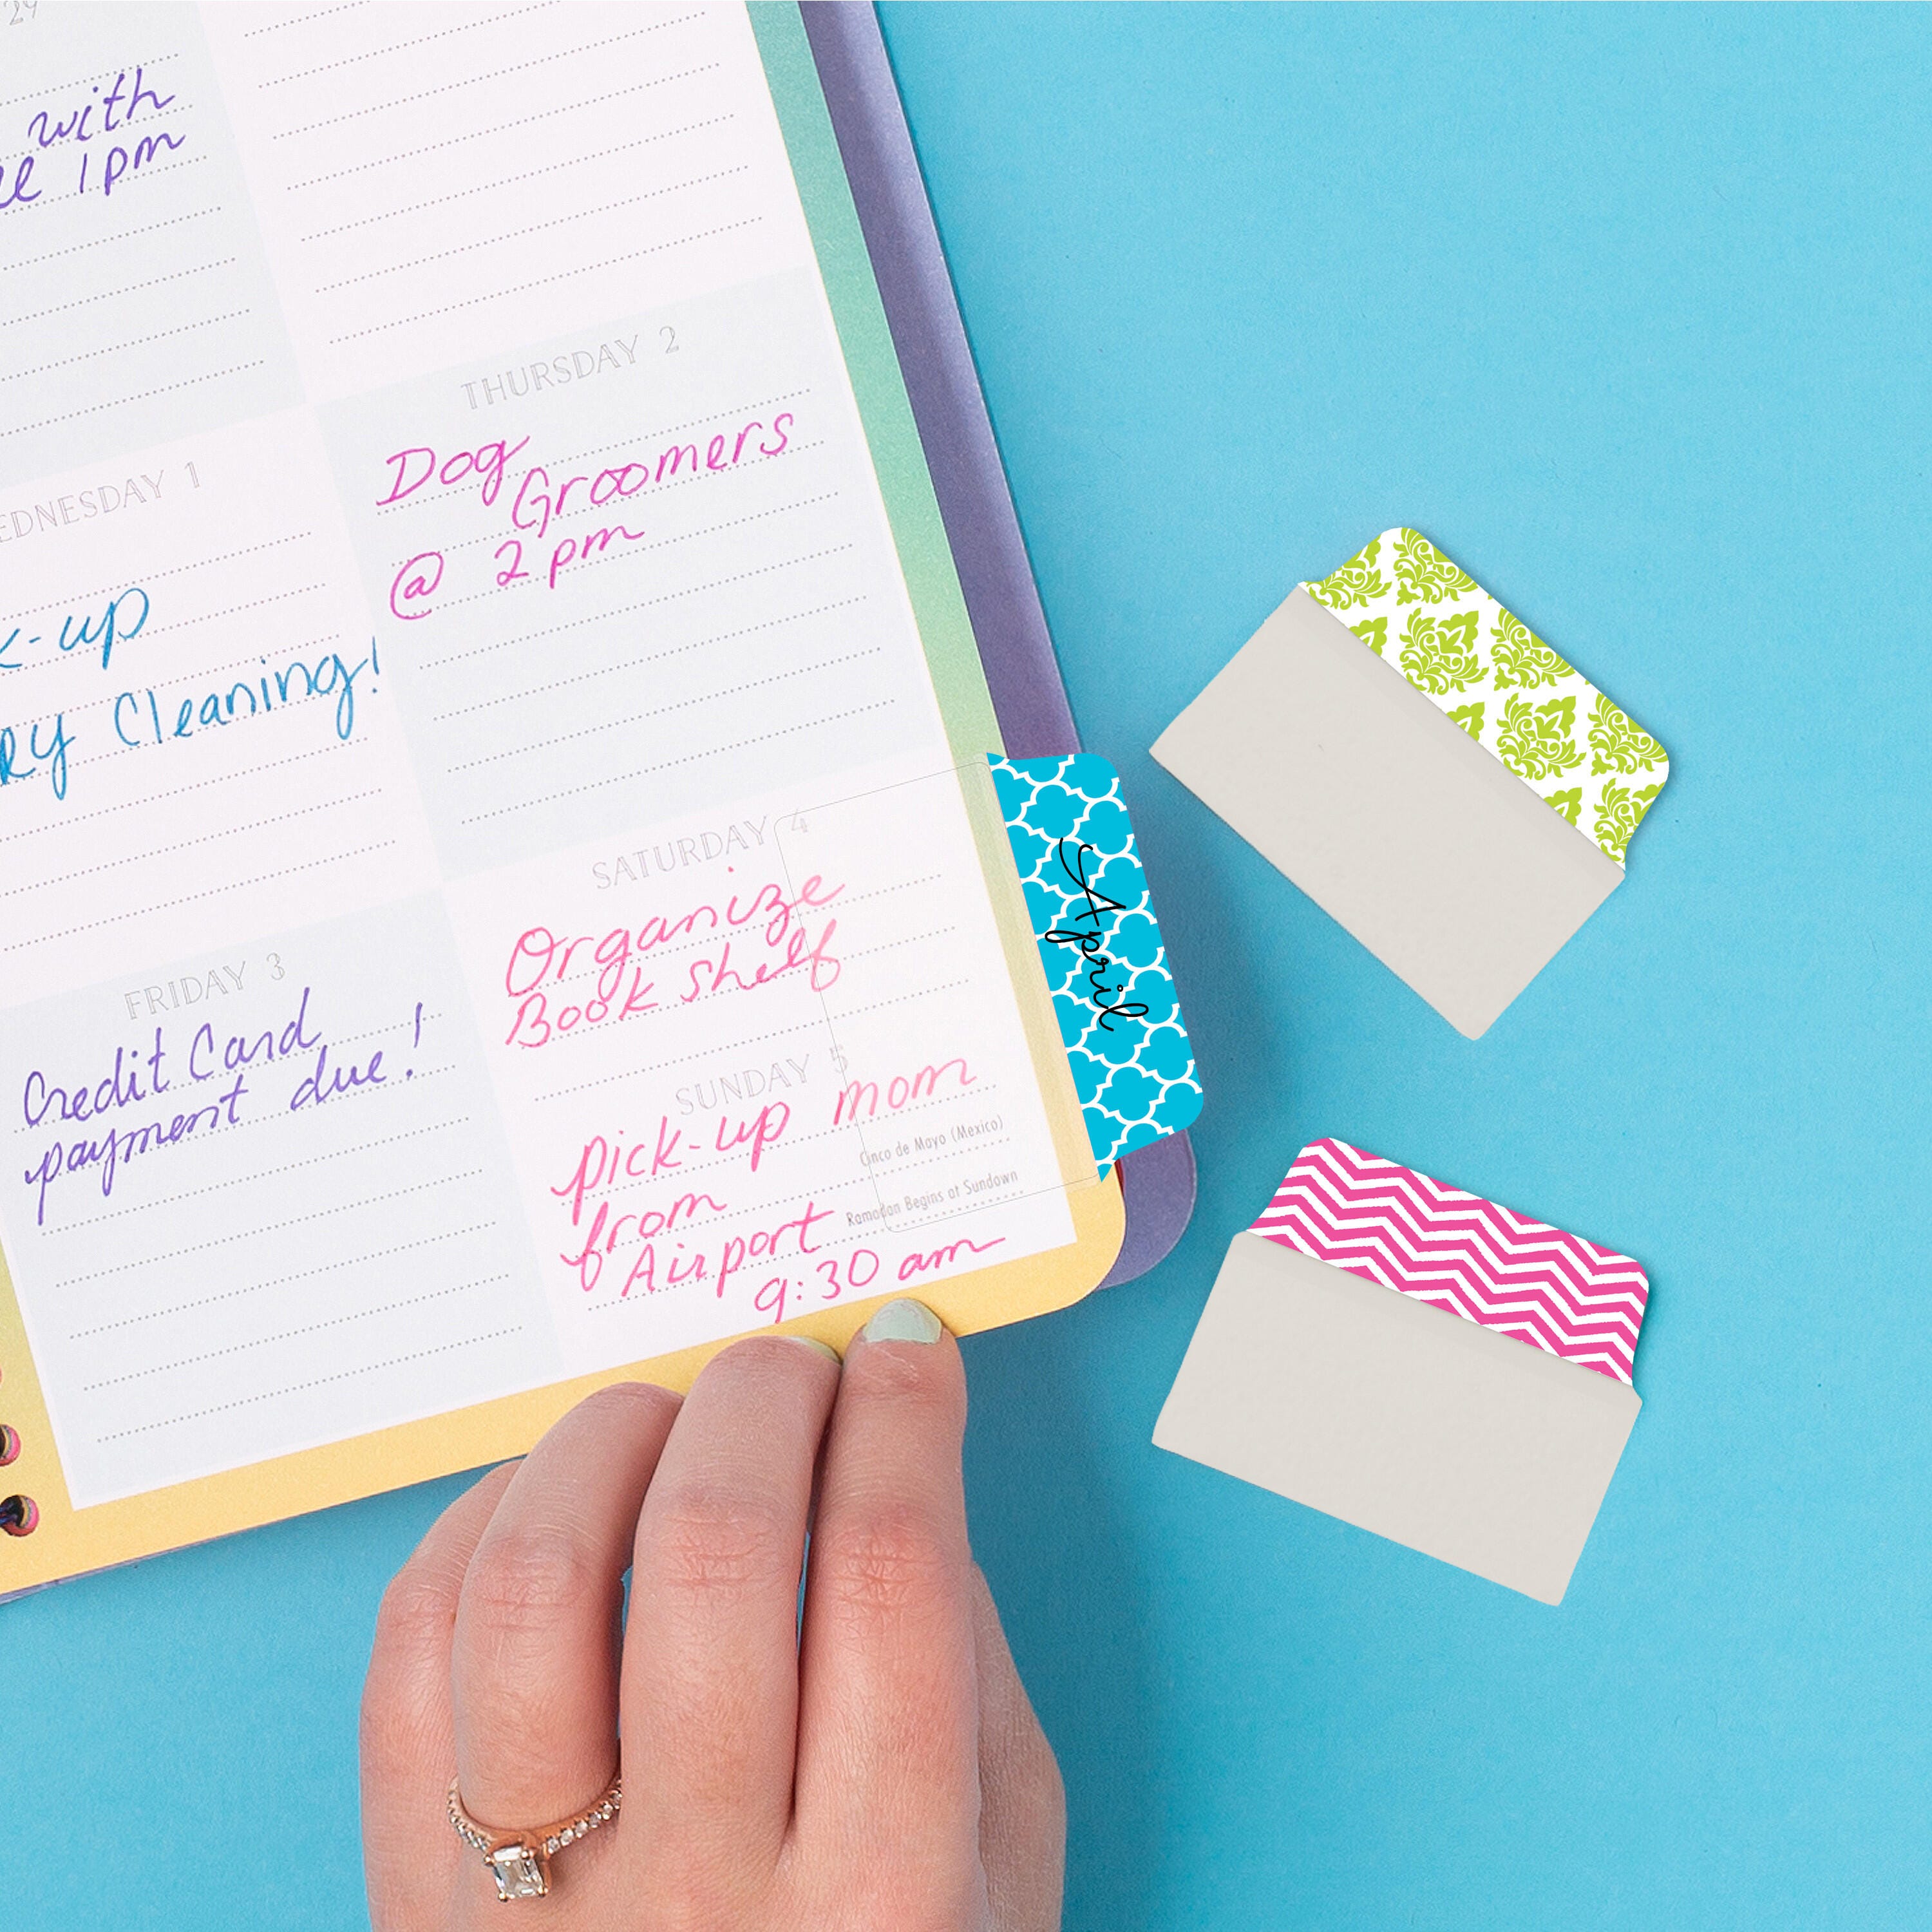 29
with
1pm
THURSDAY 2
Dog
Groomers
@ 2pm
WEDNESDAY 1
-up
Cleaning!
SATURDAY 4
Organize
Book shelf
April
FRIDAY 3
Credit Card
payment due!
SUNDAY 5
pick-up mom
Cinco de Mayo (Mexico)
from
Ramadan Begins at Sundown
Airport
9:30 am